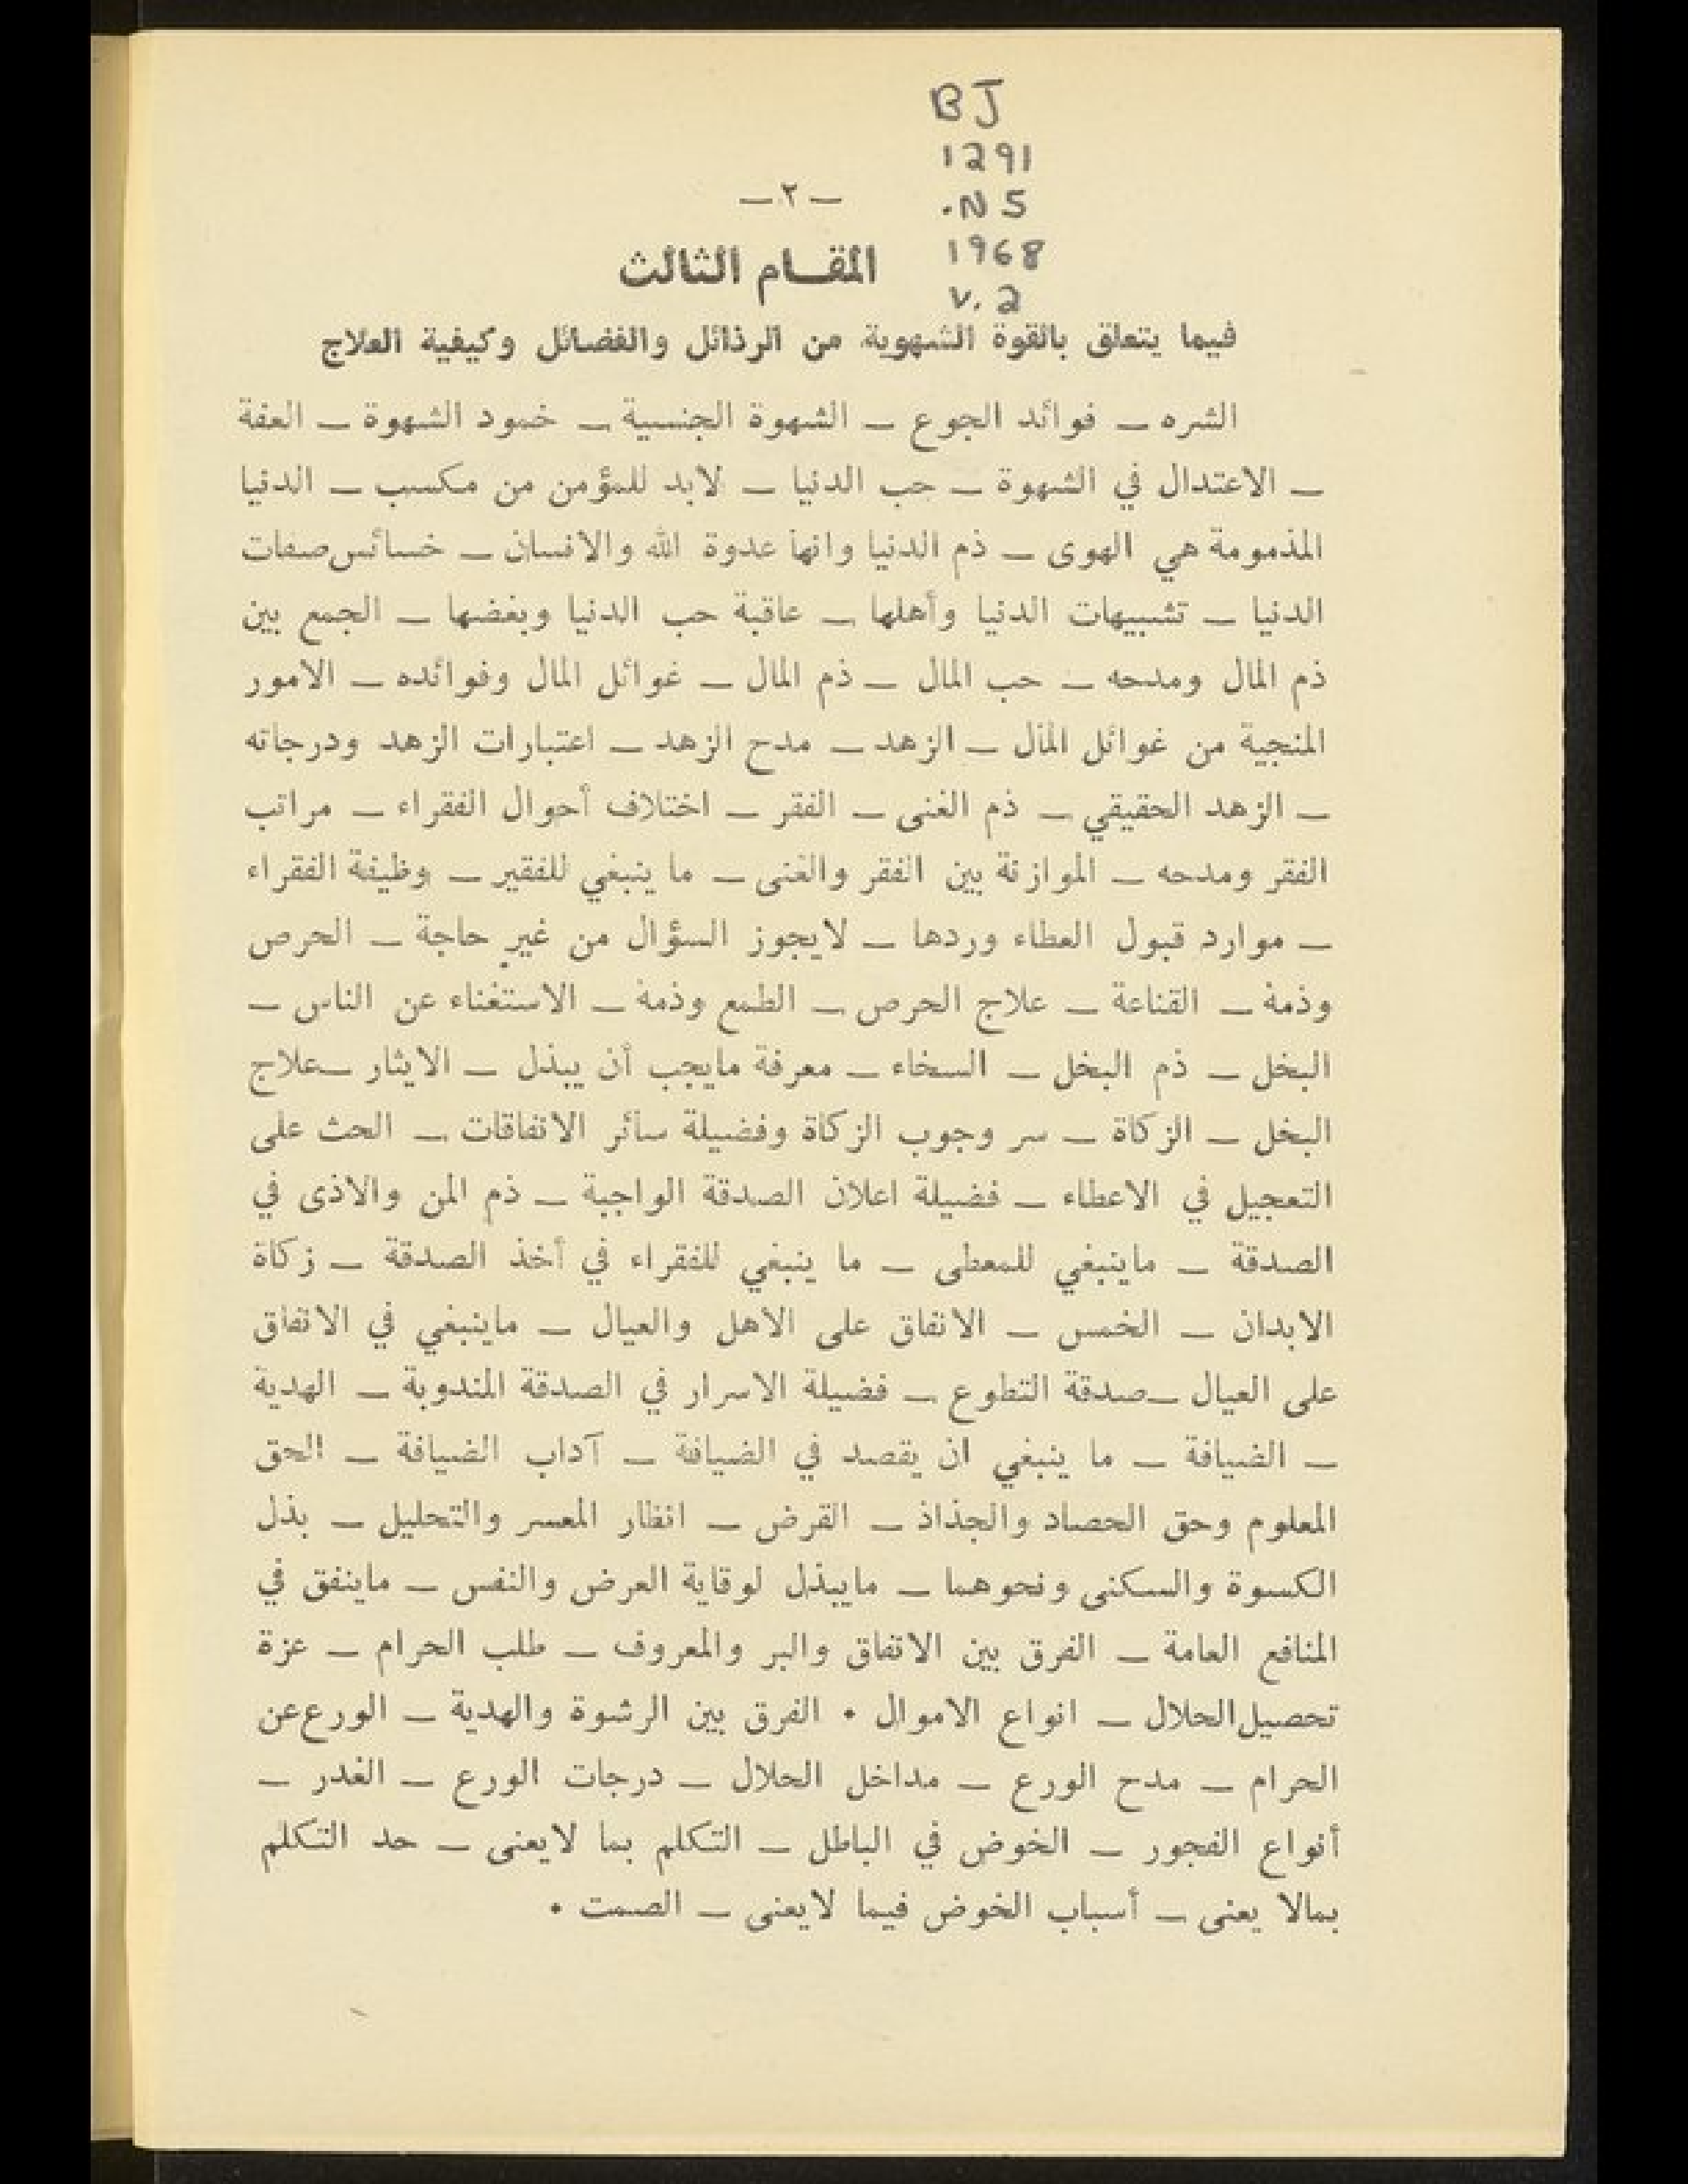 BJ
1291
.N5
1968
v.2
— ٢ —
المقـام الثالث
فيما يتعلق بالقوة الشهوية من الرذائل والفضائل وكيفية العلاج
الشره — فوائد الجوع — الشهوة الجنسية — خمود الشهوة — العفة
— الاعتدال في الشهوة — حب الدنيا — لابد للمؤمن من مكسب — الدنيا
المذمومة هي الهوى — ذم الدنيا وانها عدوة الله والانسان — خسائس صفات
الدنيا — تشبيهات الدنيا وأهلها — عاقبة حب الدنيا وبغضها — الجمع بين
ذم المال ومدحه — حب المال — ذم المال — غوائل المال وفوائده — الامور
المنجية من غوائل المال — الزهد — مدح الزهد — اعتبارات الزهد ودرجاته
— الزهد الحقيقي — ذم الغنى — الفقر — اختلاف أحوال الفقراء — مراتب
الفقر ومدحه — الموازنة بين الفقر والغنى — ما ينبغي للفقير — وظيفة الفقراء
— موارد قبول العطاء وردها — لايجوز السؤال من غير حاجة — الحرص
وذمه — القناعة — علاج الحرص — الطمع وذمه — الاستغناء عن الناس —
البخل — ذم البخل — السخاء — معرفة مايجب أن يبذل — الايثار —علاج
البخل — الزكاة — سر وجوب الزكاة وفضيلة سائر الانفاقات — الحث على
التعجيل في الاعطاء — فضيلة اعلان الصدقة الواجبة — ذم المن والاذى في
الصدقة — ماينبغي للمعطى — ما ينبغي للفقراء في أخذ الصدقة — زكاة
الابدان — الخمس — الانفاق على الاهل والعيال — ماينبغي في الانفاق
على العيال —صدقة التطوع — فضيلة الاسرار في الصدقة المندوبة — الهدية
— الضيافة — ما ينبغي ان يقصد في الضيافة — آداب الضيافة — الحق
المعلوم وحق الحصاد والجذاذ — القرض — انظار المعسر والتحليل — بذل
الكسوة والسكنى ونحوهما — مايبذل لوقاية العرض والنفس — ماينفق في
المنافع العامة — الفرق بين الانفاق والبر والمعروف — طلب الحرام — عزة
تحصيل الحلال — انواع الاموال • الفرق بين الرشوة والهدية — الورع عن
الحرام — مدح الورع — مداخل الحلال — درجات الورع — الغدر —
أنواع الفجور — الخوض في الباطل — التكلم بما لايعنى — حد التكلم
بمالا يعنى — أسباب الخوض فيما لايعنى — الصمت •